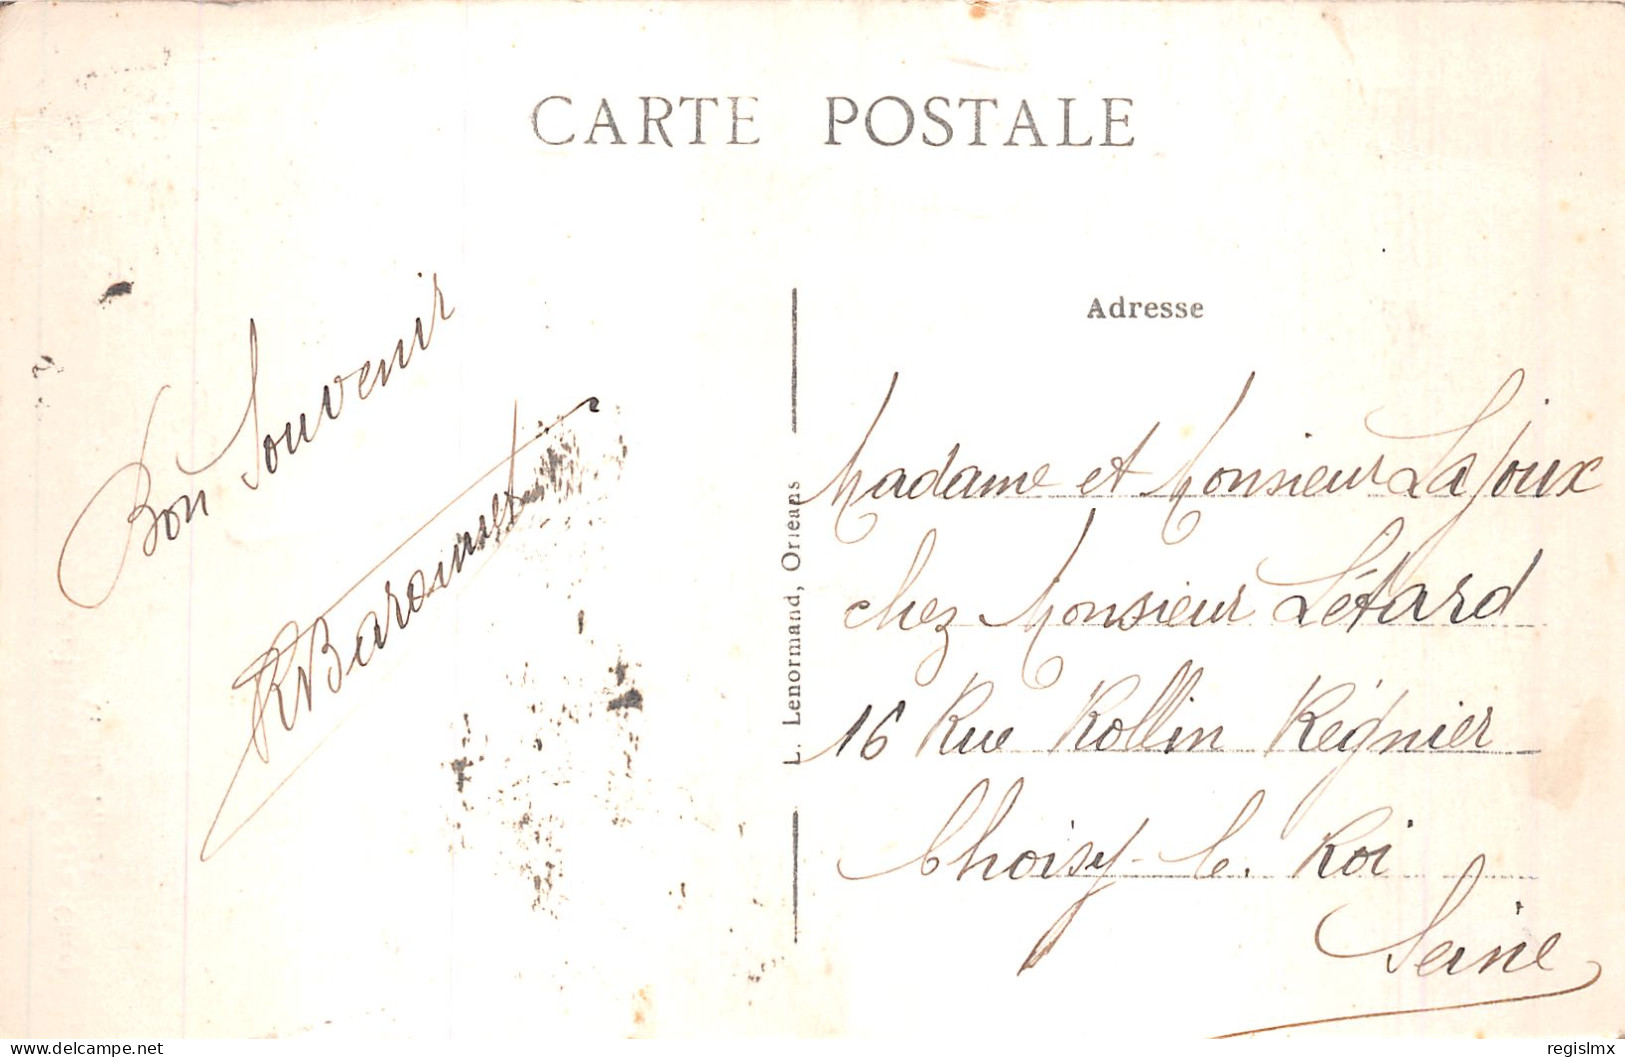 CARTE POSTALE
Bon Souvenir
L. Lenormand, Orléans
Adresse
Madame et Monsieur Lajoux
chez Monsieur Létard
16 Rue Rollin Régnier
Choisy-le. Roi
Seine
www.delcampe.net
regislmx